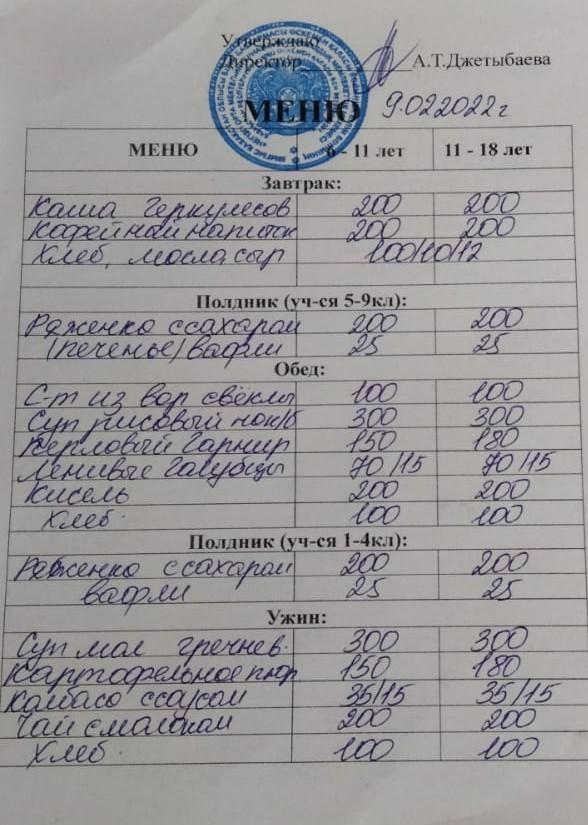 Утверждаю
Директор А.Т.Джетыбаева
МЕНЮ 9.02 2022г
МЕНЮ 6 - 11 лет 11 - 18 лет
Завтрак:
Каша Геркулесов 200 200
Кофейный напиток 200 200
Хлеб, масла сыр 100/10/12
Полдник (уч-ся 5-9кл):
Ряженко с сахаром 200 200
(печенье) вафли 25 25
Обед:
С-т из вар свёклы 100 100
Суп рисовый на к/б 300 300
Перловый гарнир 150 180
Ленивые Галубцы 70/15 70/15
Кисель 200 200
Хлеб. 100 100
Полдник (уч-ся 1-4кл):
Ряженко с сахаром 200 200
вафли 25 25
Ужин:
Суп мол гречнев. 300 300
Картофельное пюр 150 180
Калбаса с соусом 35/15 35/15
Чай с малоком 200 200
Хлеб. 100 100